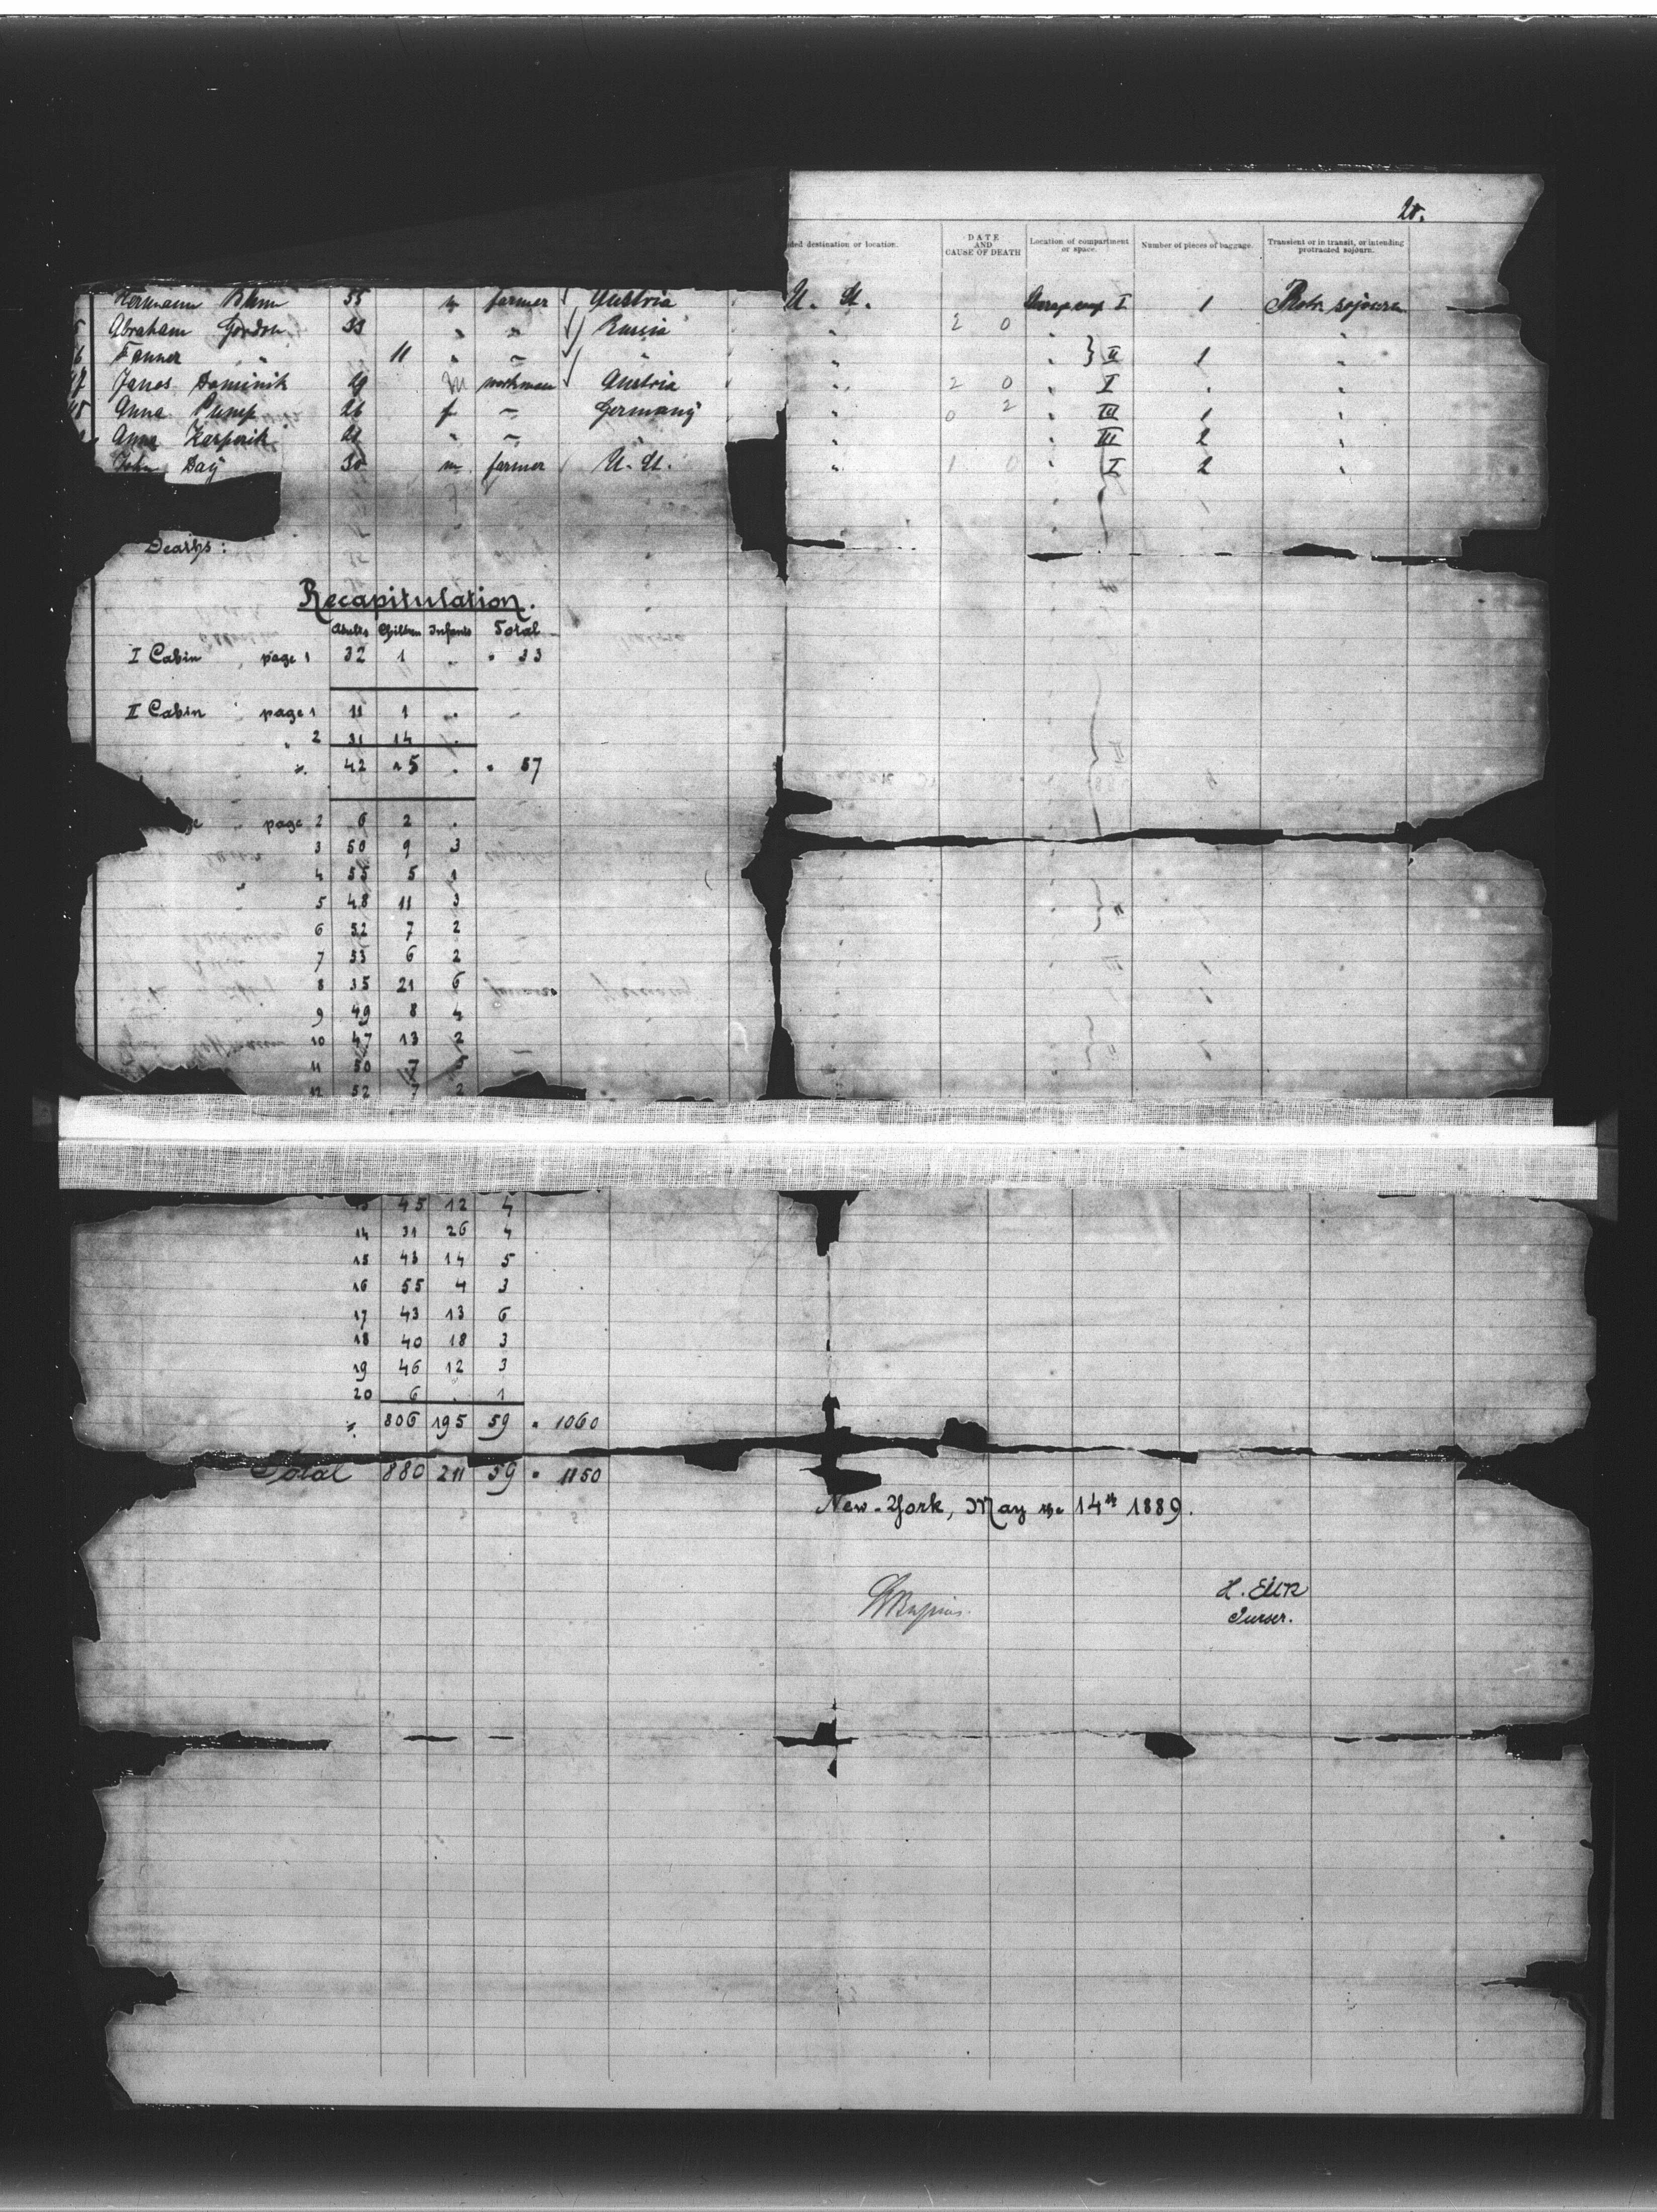 20.
ded destination or location. DATE AND CAUSE OF DEATH Location of compartment or space. Number of pieces of baggage. Transient or in transit, or intending protracted sojourn.
Hermann 35 m farmer Austria U. St. I 1 sojourn
Abraham Gordon 33 " " Russia " 2 0
6 11 " " " " } II 1 "
Janos Dominik 29 m workman Austria " 2 0 " I " "
Anna 26 f " Germany " 0 2 " III 1 "
Anna " " " " III 2 "
John Day 30 m farmer U. St. " 1 0 " I 2 "
Deaths:
Recapitulation.
Adults Children Infants Total
I Cabin page 1 32 1 . " 33
II Cabin " page 1 11 1 .
" 2 31 14 .
42 15 . " 57
ge " page 2 6 2 .
3 50 9 3
4 55 5 1
5 48 11 3
6 52 7 2
7 53 6 2
8 35 21 6
9 49 8 4
10 47 13 2
11 50 7 5
12 52 7 2
13 45 12 4
14 31 26 4
15 43 14 5
16 55 4 3
17 43 13 6
18 40 18 3
19 46 12 3
20 6 . 1
806 195 59 " 1060
Total 880 211 59 " 1150
New-York, May the 14th 1889.
Purser.